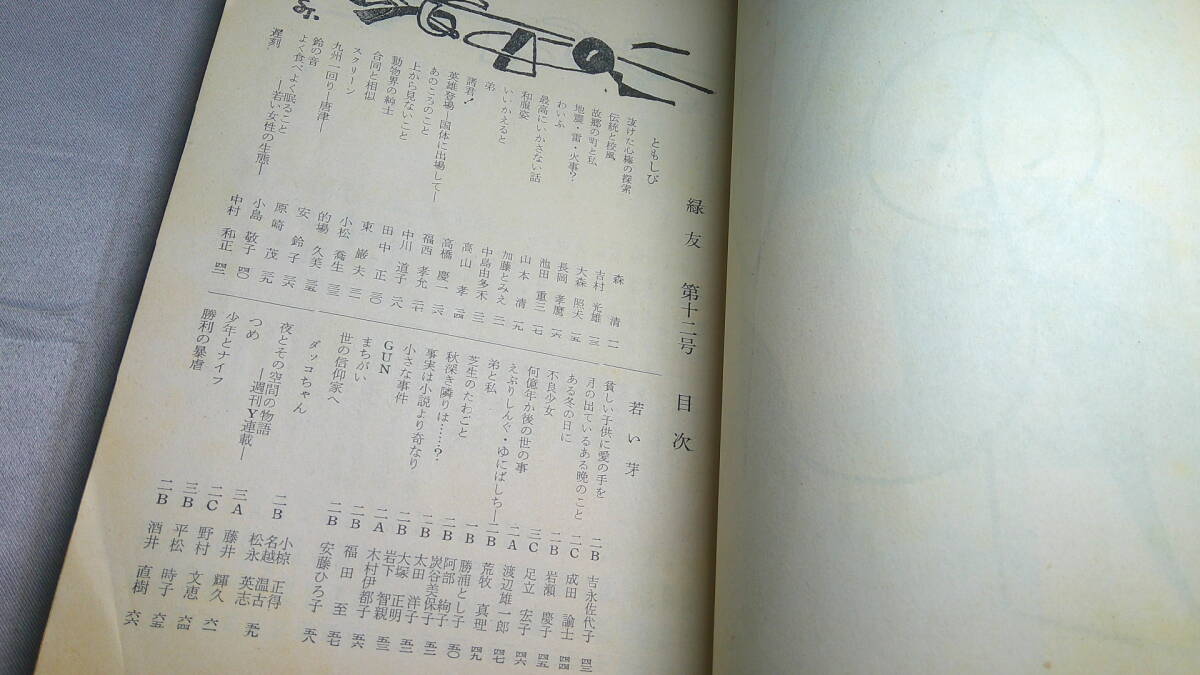 緑友 第十二号 目次
ともしび
抜けた心極の探索 森清 一一
伝統と校風 吉村光雄 一三
故郷の町と私 大森照夫 一五
地震・雷・火事? 長岡孝鷹 一六
わいふ 池田重三 一七
最高にいかさない話 山本清 一九
和服姿 加藤とみえ 二一
いいかえると 中島由多禾 二二
弟 高山孝 二四
諸君! 高橋慶一 二六
英雄登場―国体に出場して― 福西孝允 二七
あのころのこと 中川道子 二八
上から見ないこと 田中正 三〇
動物界の紳士 東巌夫 三一
合同と相似 小松喬生 三三
スクリーン 的場久美 三五
九州一回り―唐津― 安鈴子 三六
鈴の音 原崎茂 三九
よく食べよく眠ること 小島敬子 四〇
遅刻 ―若い女性の生態― 中村和正 四一
若い芽
貧しい子供に愛の手を 二B 吉永佐代子 四三
月の出ているある晩のこと 二C 成田諭士 四四
ある冬の日に 二B 岩瀬慶子 四五
不良少女 三C 足立宏子 四六
何億年か後の世の事 二A 渡辺雄一郎 四七
えぶりしんぐ・ゆにばしちー 二B 荒牧真理 四九
弟と私 一B 勝浦とし子 五〇
芝生のたわごと 二B 阿部絢子 五一
秋深き隣りは……? 二B 炭谷美保子
事実は小説より奇なり 二B 太田洋子 五二
小さな事件 二B 大塚正明
GUN 二A 岩下智親 五三
まちがい 二B 木村伊都子 五六
世の信仰家へ 二B 福田至 五七
ダッコちゃん 二B 安藤ひろ子 五八
夜とその空間の物語 ―週刊Y連載― 二B 小椋正得 名越温古 松永英志 五九
つめ 三A 藤井輝久 六一
少年とナイフ 二C 野村文恵 六四
勝利の暴虐 三B 平松時子 六五
二B 酒井直樹 六六